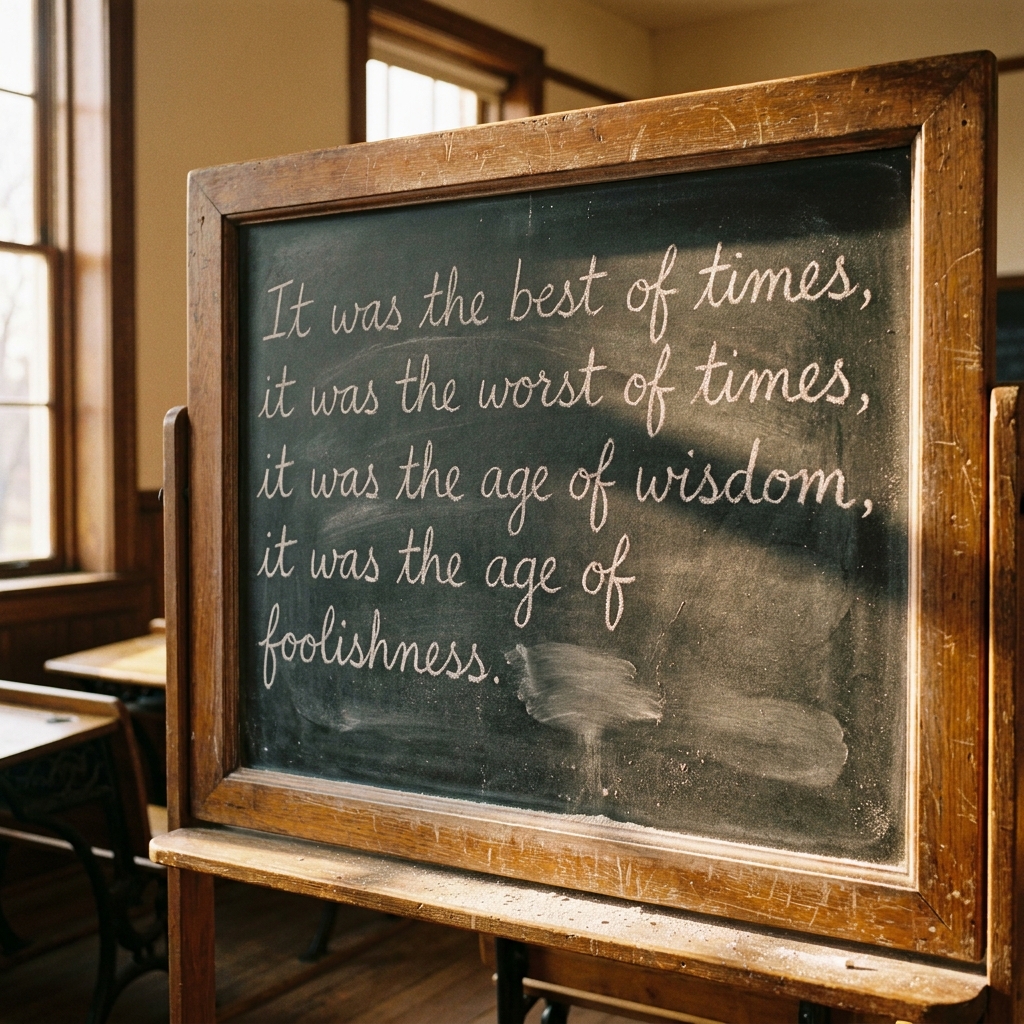 It was the best of times,
it was the worst of times,
it was the age of wisdom,
it was the age of
foolishness.